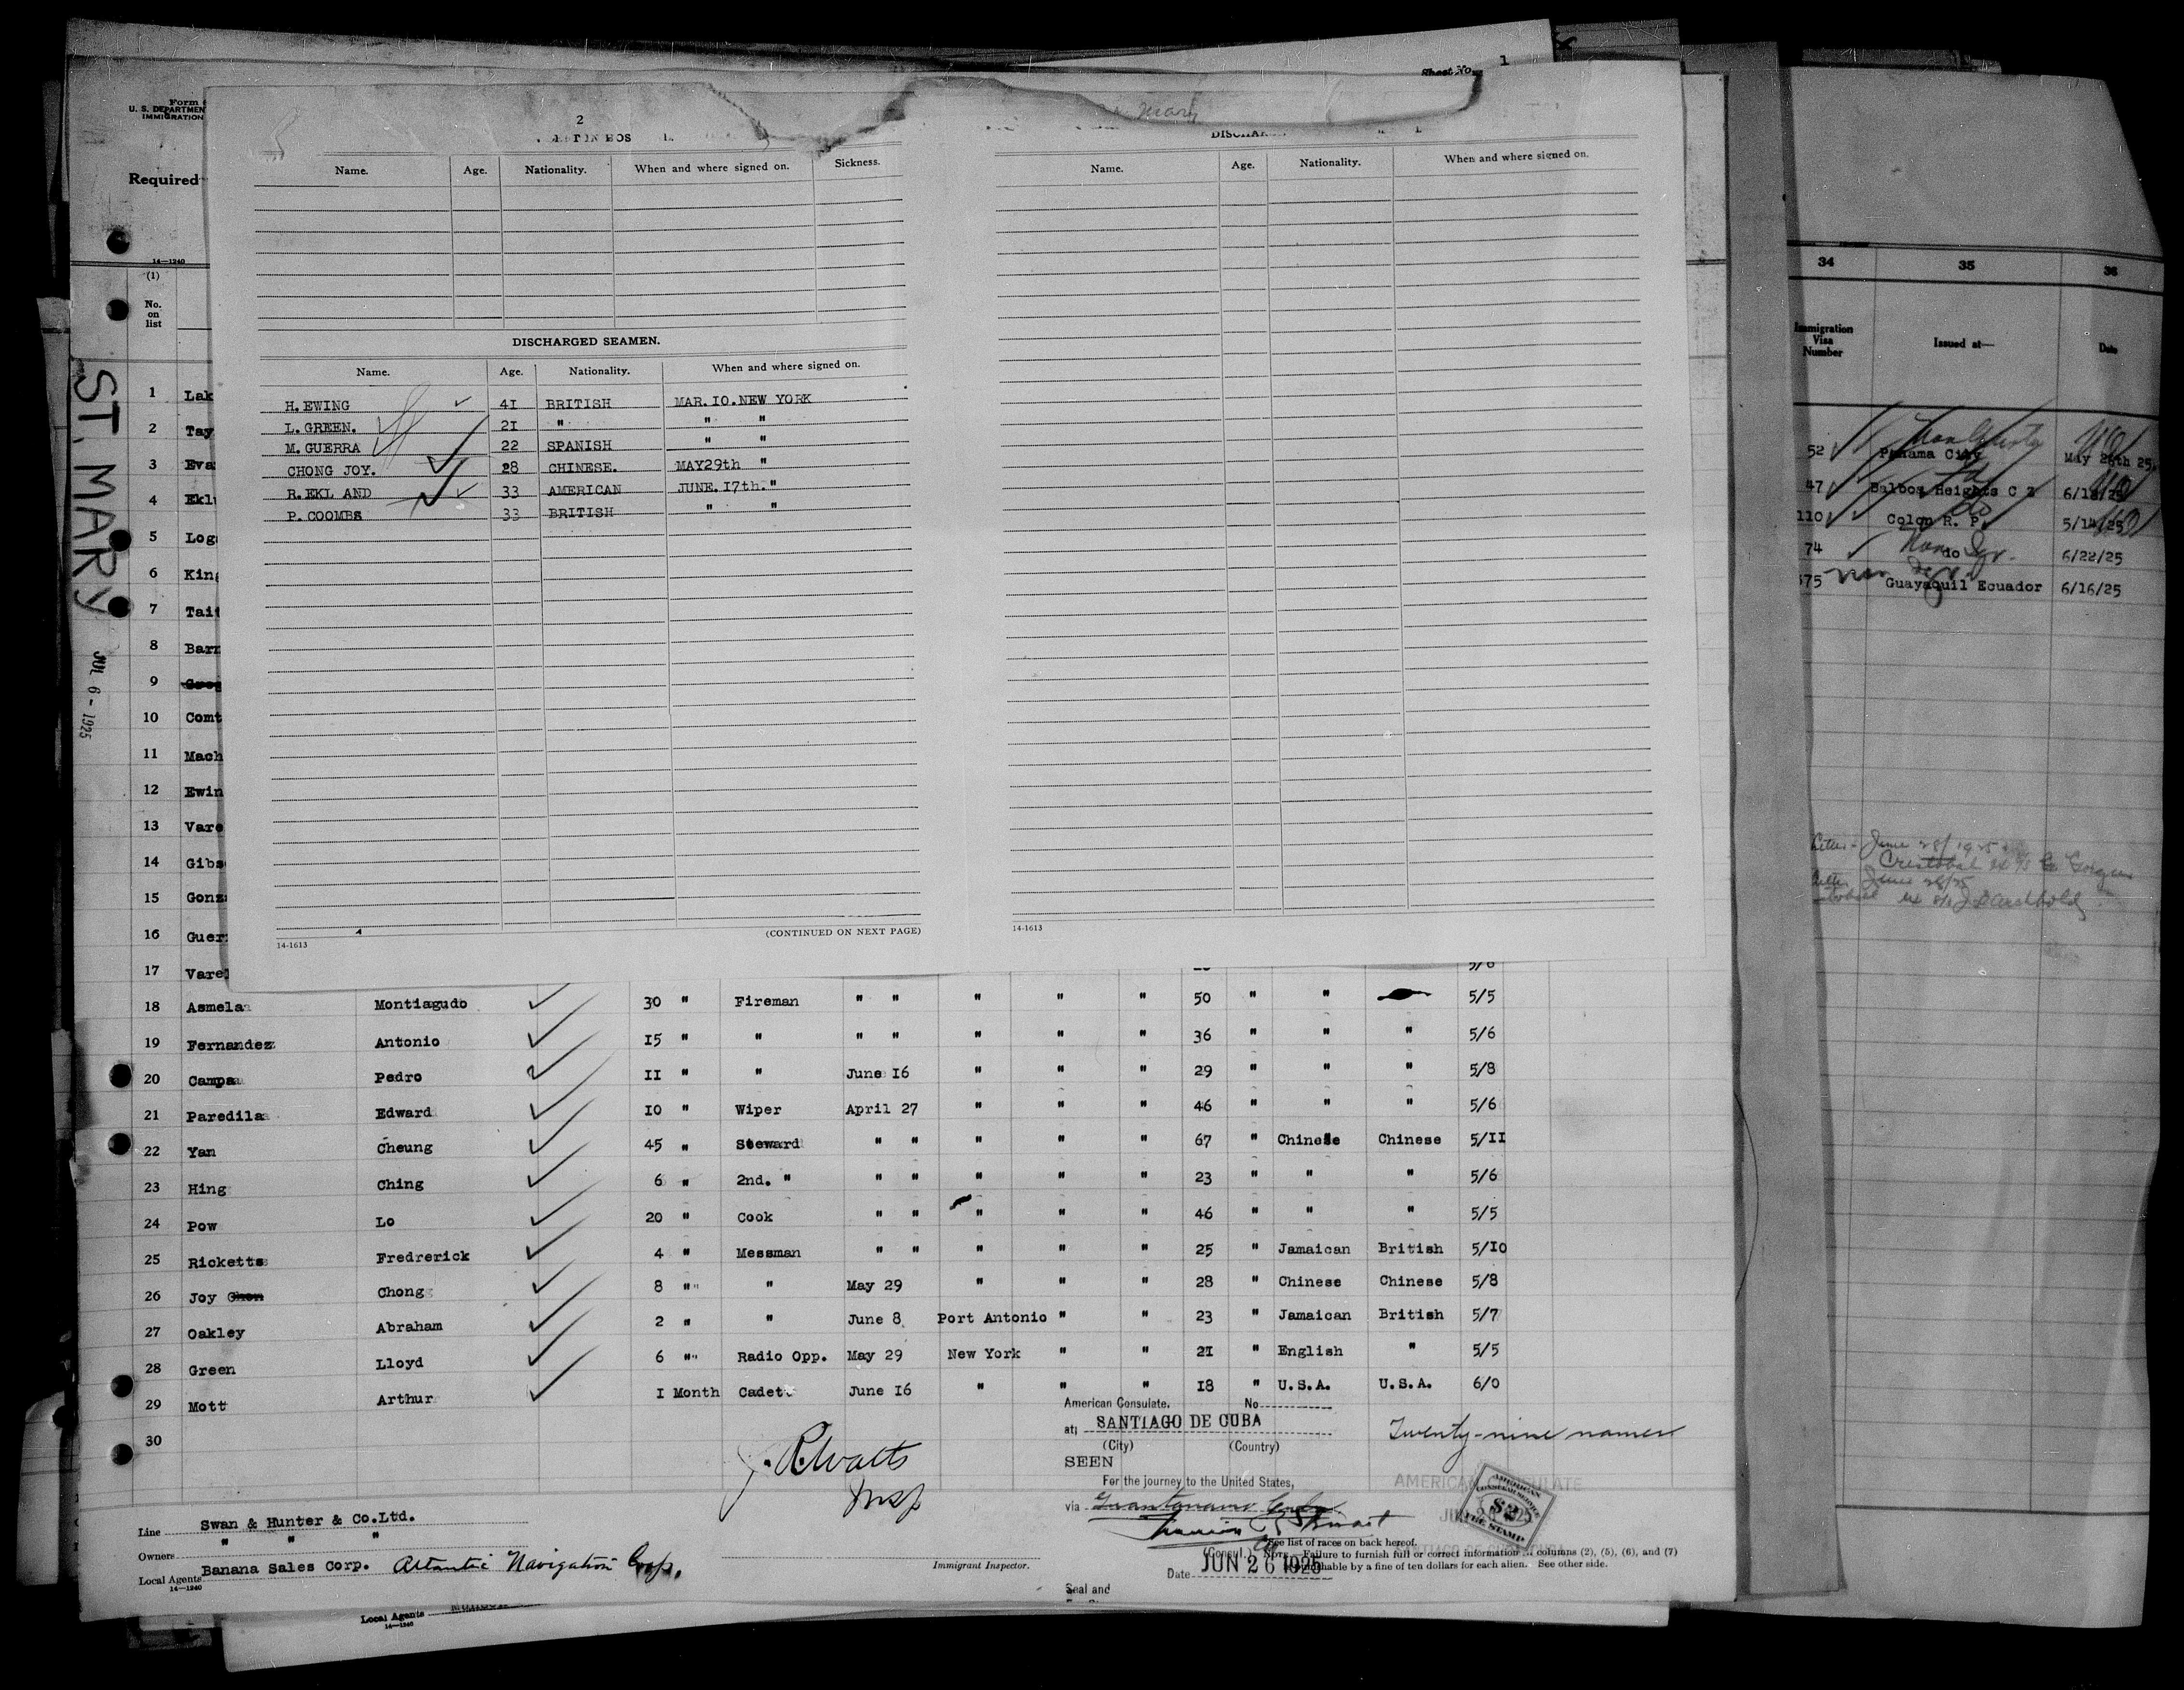 Sheet No. 1
Form
U. S. DEPARTMEN
IMMIGRATION
Required
14—1240
(1)
No.
on
list
ST. MARY
JUL 6 - 1925
2
Mary
Name. Age. Nationality. When and where signed on. Sickness.
DISCHARGED SEAMEN.
Name. Age. Nationality. When and where signed on.
H. EWING 41 BRITISH MAR. 10. NEW YORK
L. GREEN. 21 " " "
M. GUERRA 22 SPANISH " "
CHONG JOY. 28 CHINESE. MAY29th "
R. EKL AND 33 AMERICAN JUNE. 17th. "
P. COOMBS 33 BRITISH " "
(CONTINUED ON NEXT PAGE)
14-1613
Name. Age. Nationality. When and where signed on.
14-1613
1 Lak
2 Tay
3 Eva
4 Ekl
5 Log
6 King
7 Tait
8 Barn
9
10 Comt
11 Mach
12 Ewin
13 Vare
14 Gibs
15 Gonz
16 Guer
17 Vare 5/6
18 Asmela Montiagudo 30 " Fireman " " " " " 50 " " 5/5
19 Fernandez Antonio 15 " " " " " " " 36 " " " 5/6
20 Campa Pedro II " " June 16 " " " 29 " " " 5/8
21 Paredila Edward 10 " Wiper April 27 " " " 46 " " " 5/6
22 Yan Cheung 45 " Steward " " " " " 67 " Chinese Chinese 5/II
23 Hing Ching 6 " 2nd. " " " " " " 23 " " " 5/6
24 Pow Lo 20 " Cook " " " " " 46 " " " 5/5
25 Ricketts Fredrerick 4 " Messman " " " " " 25 " Jamaican British 5/10
26 Joy Chong 8 " " May 29 " " " 28 " Chinese Chinese 5/8
27 Oakley Abraham 2 " " June 8 Port Antonio " " 23 " Jamaican British 5/7
28 Green Lloyd 6 " Radio Opp. May 29 New York " " 21 " English " 5/5
29 Mott Arthur I Month Cadet June 16 " " " 18 " U.S.A. U.S.A. 6/0
30
American Consulate. No.
at; SANTIAGO DE CUBA
(City) (Country)
SEEN
For the journey to the United States,
via
Twenty-nine names
AMERICAN CONSULATE
AMERICAN
CONSULAR SERVICE
FEE STAMP
Line Swan & Hunter & Co.Ltd.
Owners " "
Local Agents Banana Sales Corp. Atlantic Navigation Corp.
14—1240
Immigrant Inspector.
(Consul.)
See list of races on back hereof.
NOTE.—Failure to furnish full or correct information in columns (2), (5), (6), and (7)
punishable by a fine of ten dollars for each alien. See other side.
Date JUN 26 1925
Seal and
Local Agents
14—1240
34 35 36
Immigration
Visa
Number
Issued at—
Date
52 Panama City May 28th 25.
47 Balboa Heights C Z 6/18/25
110 Colon R. P. 5/14/25
74 do 6/22/25
375 Guayaquil Ecuador 6/16/25
June 28/1925
Cristobal